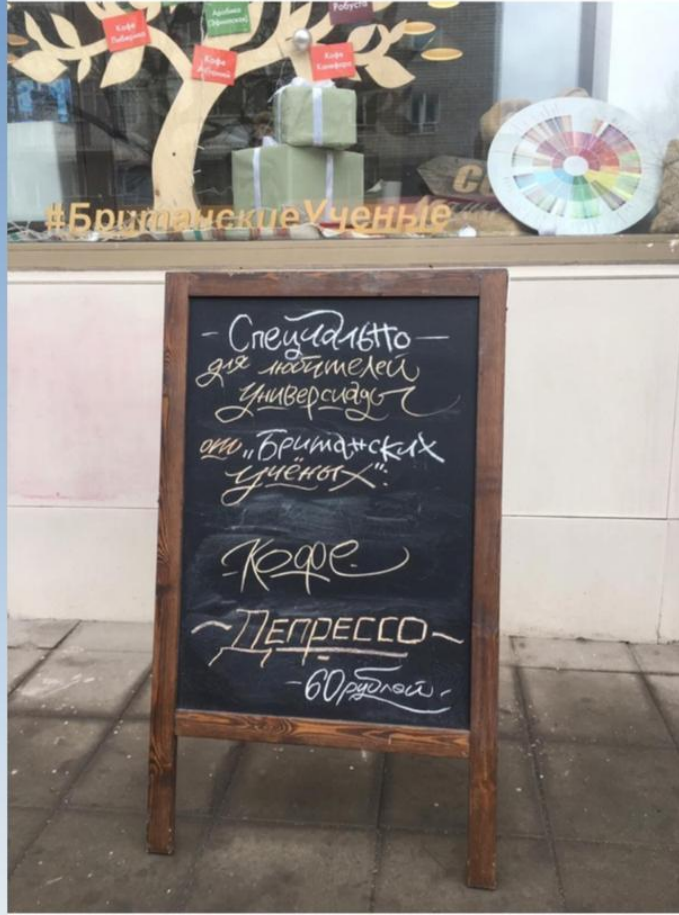 Кофе
Либерика
Арабика
Эфиопская
Робуста
Кофе
Арабика
Кофе
Канефора
#БританскиеУченые
- Специально -
для любителей
Универсиады
от „Британских
учёных":
Кофе
~ Депрессо ~
- 60 рублей -